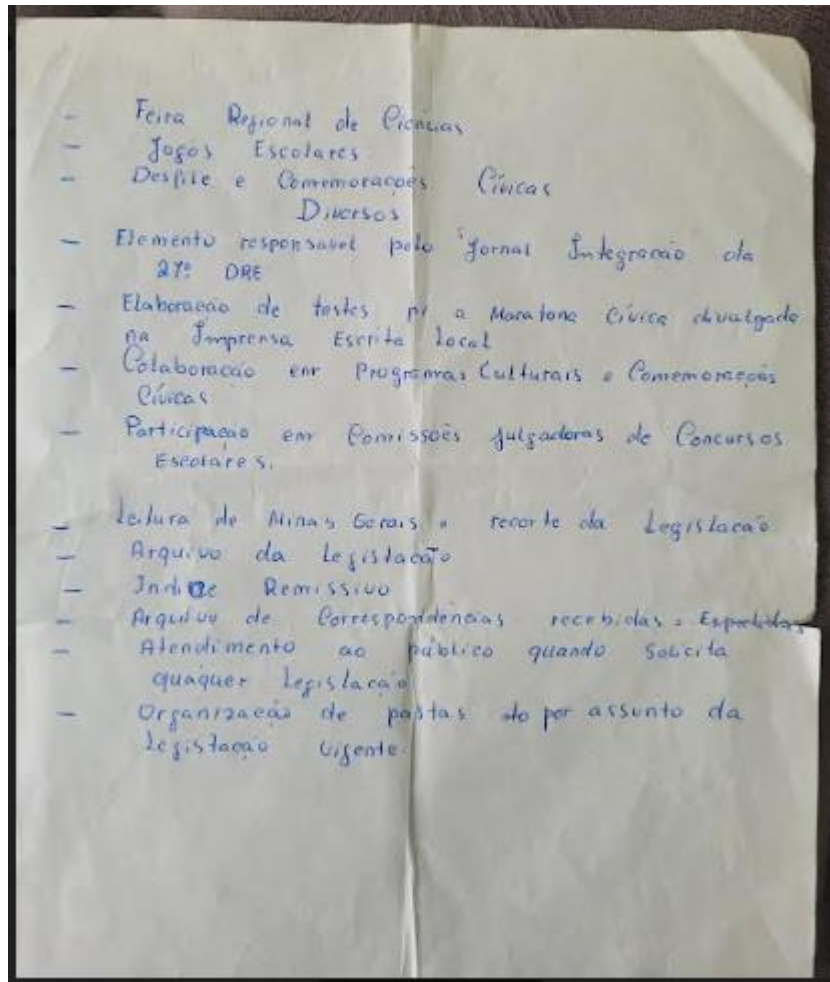 - Feira Regional de Ciências
- Jogos Escolares
- Desfile e Comemorações Cívicas
Diversos
- Elemento responsavel pelo Jornal Integração da
27ª DRE
- Elaboração de testes p/ a Maratona Cívica divulgada
na Imprensa Escrita Local
- Colaboração em Programas Culturais e Comemorações
Cívicas
- Participação em Comissões julgadoras de Concursos
Escolares.
- Leitura de Minas Gerais e recorte da Legislação
- Arquivo da Legislação
- Indice Remissivo
- Arquivo de Correspondências recebidas e Expedidas
- Atendimento ao público quando solicita
quaquer Legislação
- Organização de pastas por assunto da
Legislação vigente.